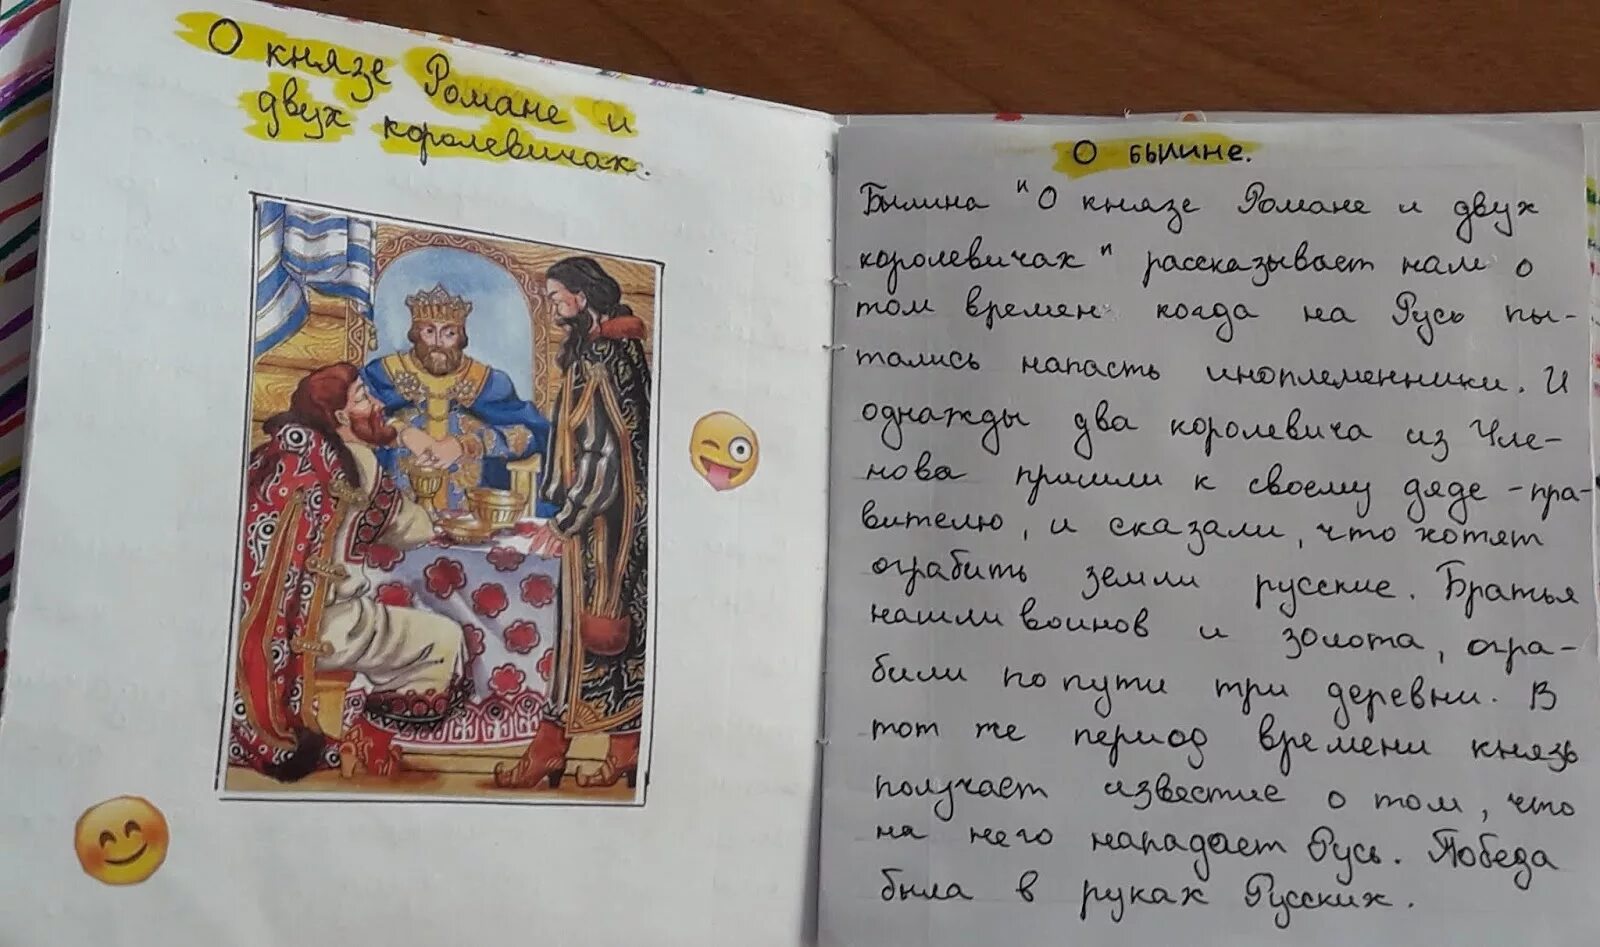 О князе Романе и
двух королевичах.
О былине.
Былина "О князе Романе и двух
королевичах" рассказывает нам о
том времен когда на Русь пы-
тались напасть иноплеменники. И
однажды два королевича из Чле-
нова пришли к своему дяде - пра-
вителю, и сказали, что хотят
ограбить земли русские. Братья
нашли воинов и золота, огра-
били по пути три деревни. В
тот же период времени князь
получает известие о том, что
на него нападает Русь. Победа
была в руках Русских.